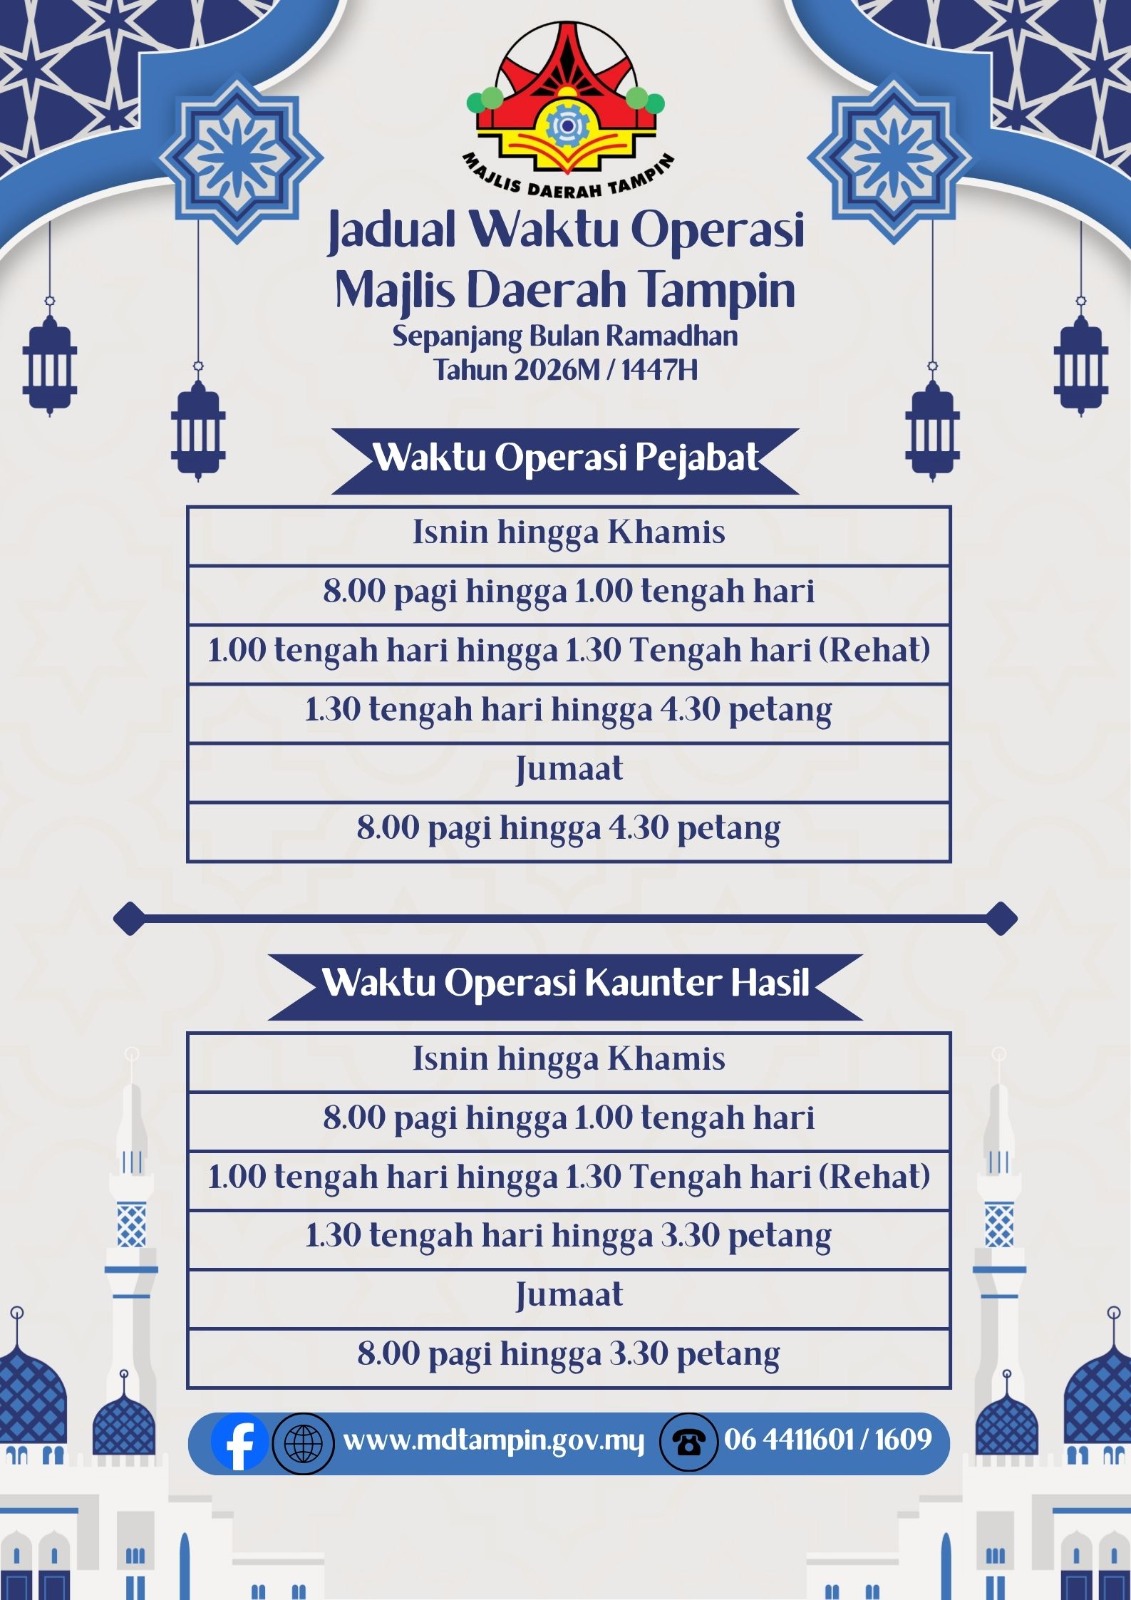 MAJLIS DAERAH TAMPIN
Jadual Waktu Operasi
Majlis Daerah Tampin
Sepanjang Bulan Ramadhan
Tahun 2026M / 1447H
Waktu Operasi Pejabat
Isnin hingga Khamis
8.00 pagi hingga 1.00 tengah hari
1.00 tengah hari hingga 1.30 Tengah hari (Rehat)
1.30 tengah hari hingga 4.30 petang
Jumaat
8.00 pagi hingga 4.30 petang
Waktu Operasi Kaunter Hasil
Isnin hingga Khamis
8.00 pagi hingga 1.00 tengah hari
1.00 tengah hari hingga 1.30 Tengah hari (Rehat)
1.30 tengah hari hingga 3.30 petang
Jumaat
8.00 pagi hingga 3.30 petang
www.mdtampin.gov.my 06 4411601 / 1609